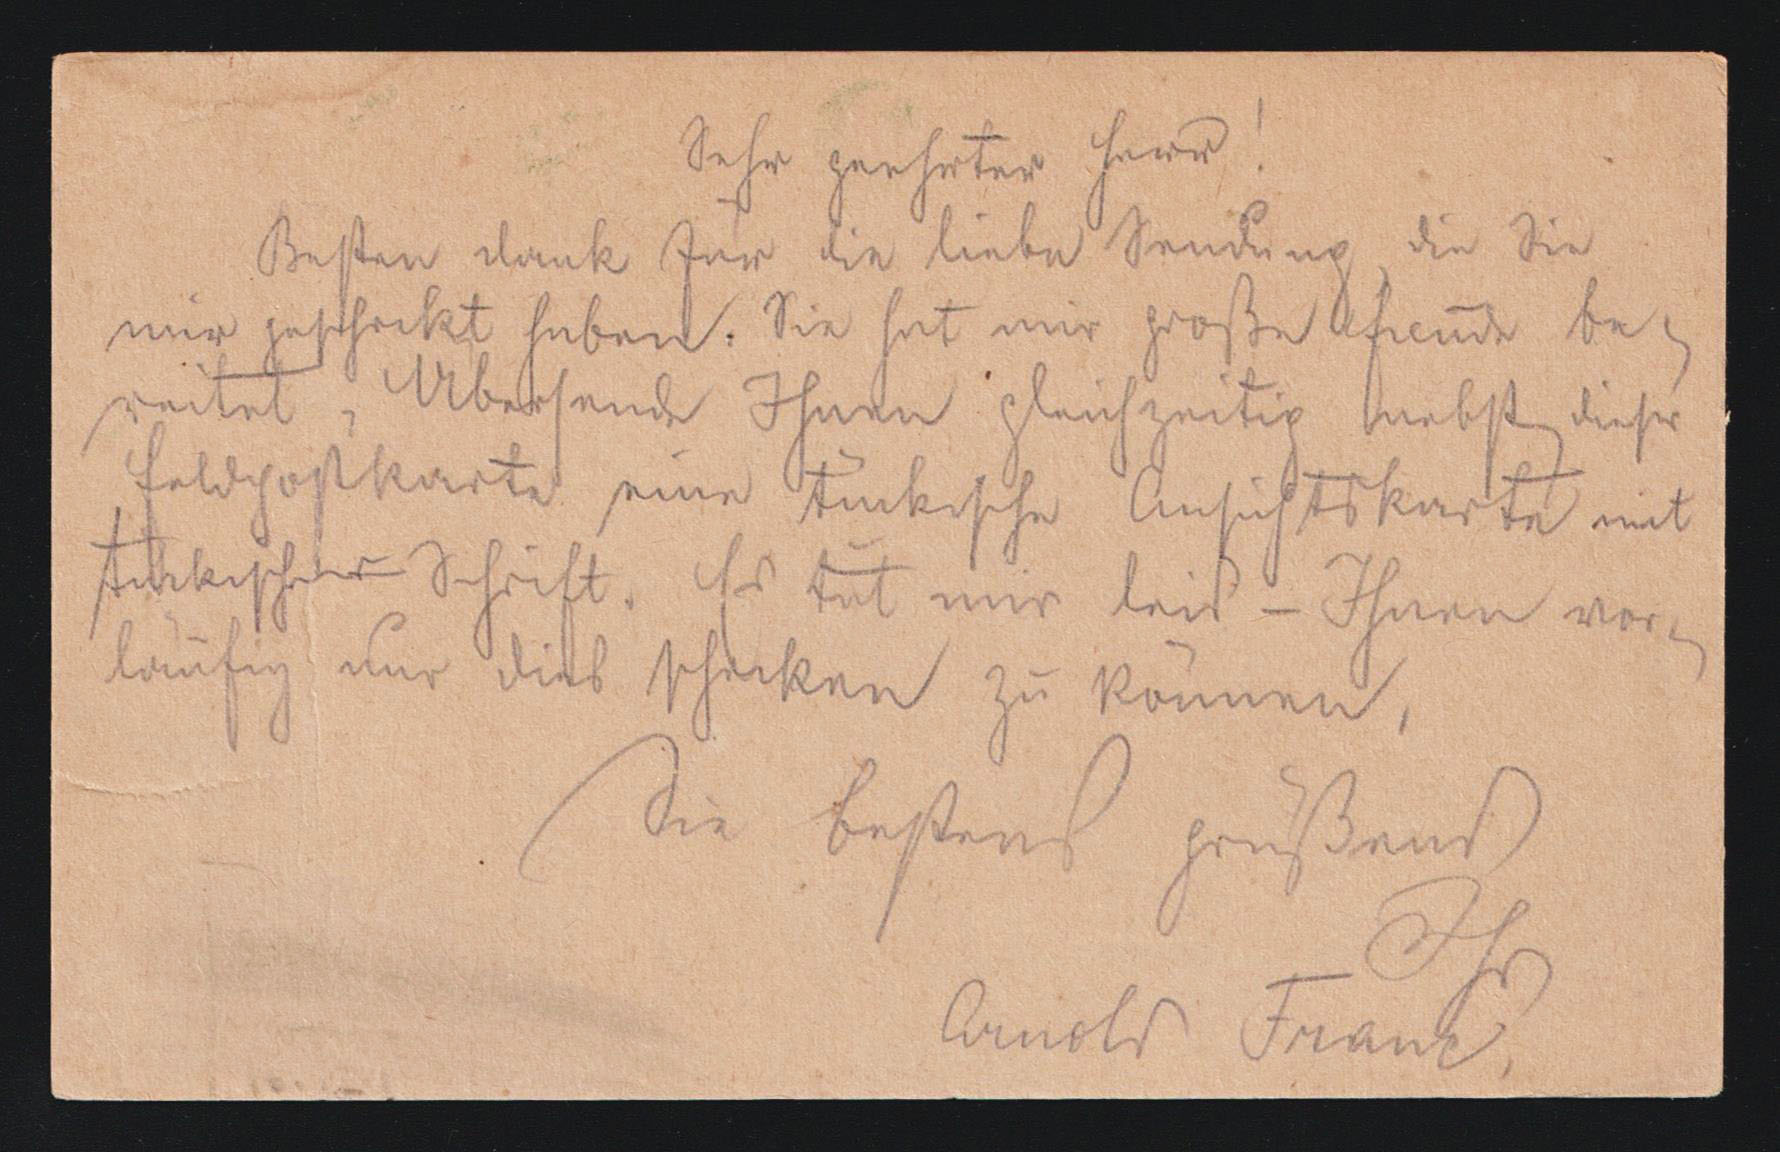 Sehr geehrter Herr!
Besten dank für die liebe Sendung, die Sie
mir geschickt haben. Sie hat mir große Freude be-
reitet, Übersende Ihnen gleichzeitig nebst dieser
Feldpostkarte eine türkische Ansichtskarte mit
türkischer Schrift. Es tut mir leid – Ihnen vor-
läufig nur dies schicken zu können,
Sie bestens grüßend
Ihr
Arnold Franz.